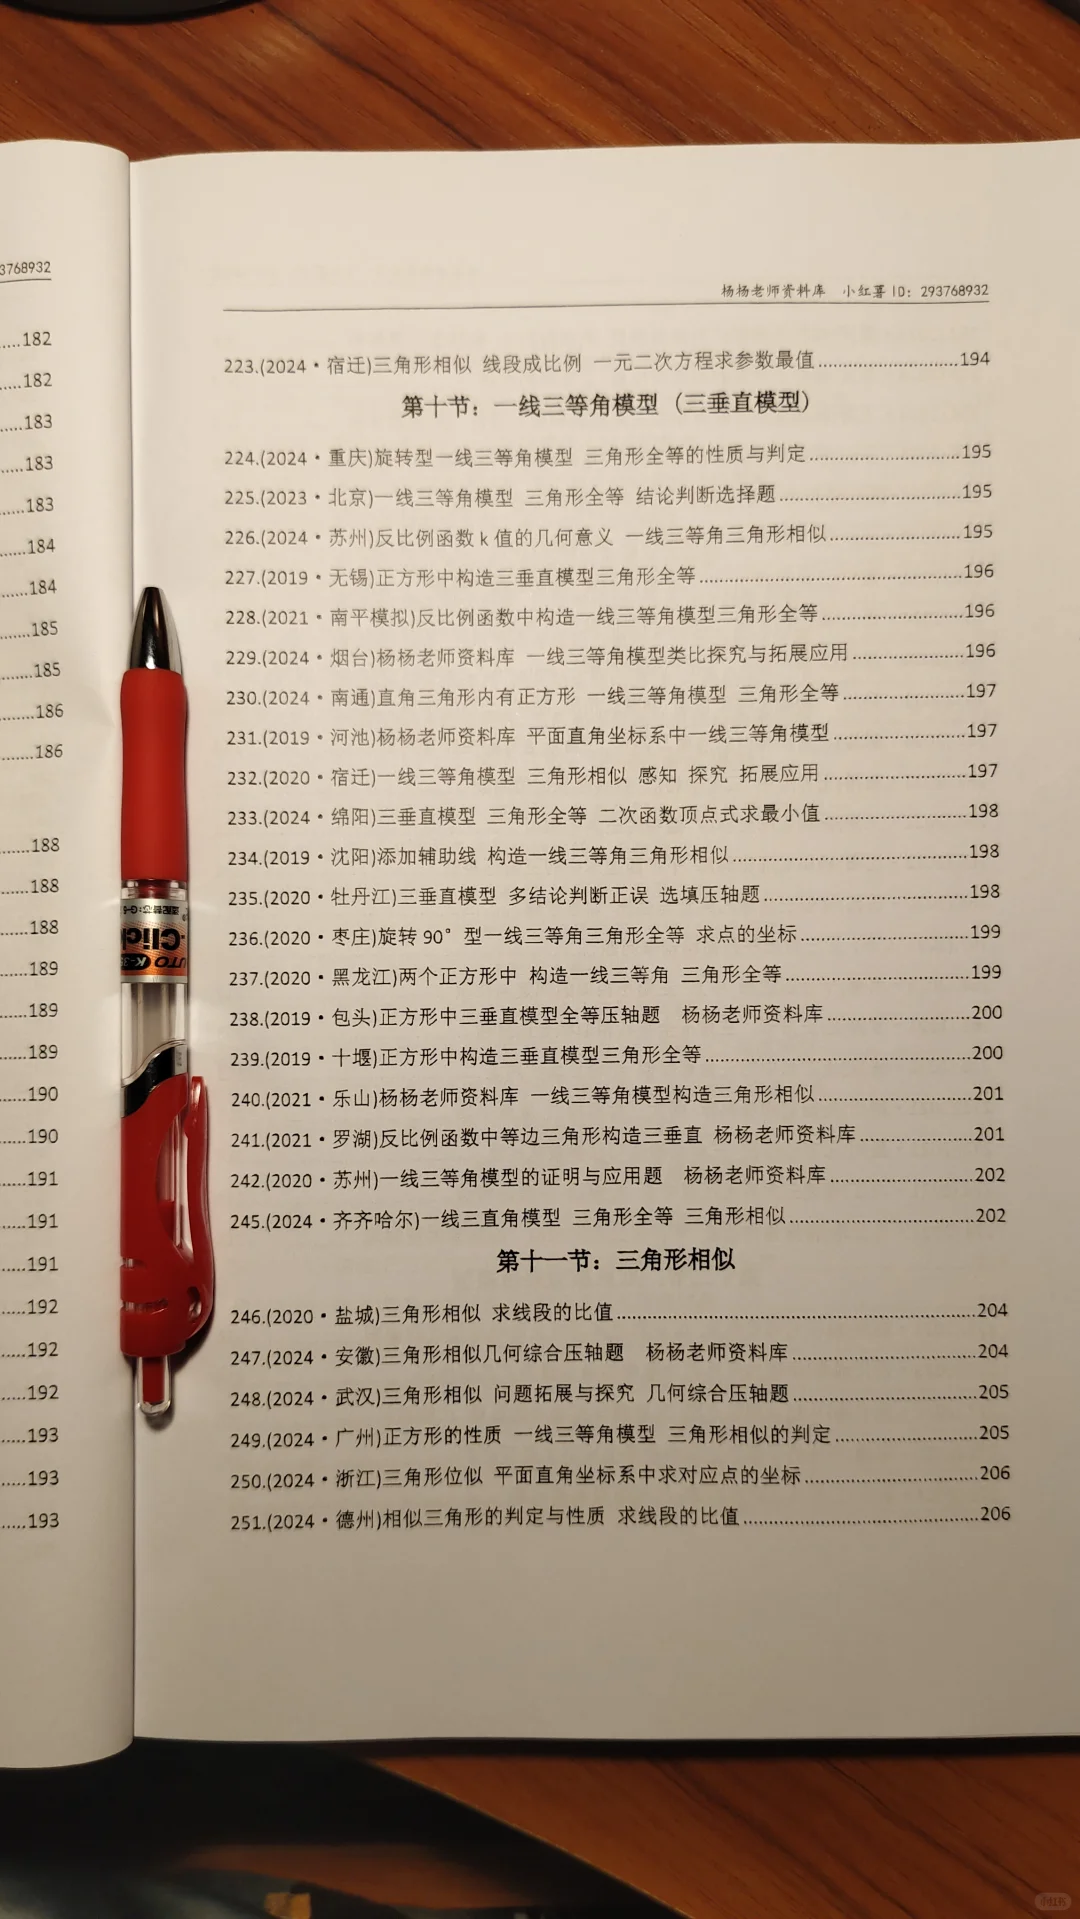 3768932
.....182
.....182
.....183
.....183
.....183
.....184
.....184
.....185
.....185
.....186
.....186
.....188
.....188
.....188
.....189
.....189
.....189
.....190
.....190
.....191
.....191
.....191
.....192
.....192
.....192
.....193
.....193
.....193
杨杨老师资料库 小红薯 ID: 293768932
223.(2024·宿迁)三角形相似 线段成比例 一元二次方程求参数最值..........194
第十节：一线三等角模型（三垂直模型）
224.(2024·重庆)旋转型一线三等角模型 三角形全等的性质与判定..........195
225.(2023·北京)一线三等角模型 三角形全等 结论判断选择题..........195
226.(2024·苏州)反比例函数 k 值的几何意义 一线三等角三角形相似..........195
227.(2019·无锡)正方形中构造三垂直模型三角形全等..........196
228.(2021·南平模拟)反比例函数中构造一线三等角模型三角形全等..........196
229.(2024·烟台)杨杨老师资料库 一线三等角模型类比探究与拓展应用..........196
230.(2024·南通)直角三角形内有正方形 一线三等角模型 三角形全等..........197
231.(2019·河池)杨杨老师资料库 平面直角坐标系中一线三等角模型..........197
232.(2020·宿迁)一线三等角模型 三角形相似 感知 探究 拓展应用..........197
233.(2024·绵阳)三垂直模型 三角形全等 二次函数顶点式求最小值..........198
234.(2019·沈阳)添加辅助线 构造一线三等角三角形相似..........198
235.(2020·牡丹江)三垂直模型 多结论判断正误 选填压轴题..........198
236.(2020·枣庄)旋转 90° 型一线三等角三角形全等 求点的坐标..........199
237.(2020·黑龙江)两个正方形中 构造一线三等角 三角形全等..........199
238.(2019·包头)正方形中三垂直模型全等压轴题 杨杨老师资料库..........200
239.(2019·十堰)正方形中构造三垂直模型三角形全等..........200
240.(2021·乐山)杨杨老师资料库 一线三等角模型构造三角形相似..........201
241.(2021·罗湖)反比例函数中等边三角形构造三垂直 杨杨老师资料库..........201
242.(2020·苏州)一线三等角模型的证明与应用题 杨杨老师资料库..........202
245.(2024·齐齐哈尔)一线三直角模型 三角形全等 三角形相似..........202
第十一节：三角形相似
246.(2020·盐城)三角形相似 求线段的比值..........204
247.(2024·安徽)三角形相似几何综合压轴题 杨杨老师资料库..........204
248.(2024·武汉)三角形相似 问题拓展与探究 几何综合压轴题..........205
249.(2024·广州)正方形的性质 一线三等角模型 三角形相似的判定..........205
250.(2024·浙江)三角形位似 平面直角坐标系中求对应点的坐标..........206
251.(2024·德州)相似三角形的判定与性质 求线段的比值..........206
-Click
小红书